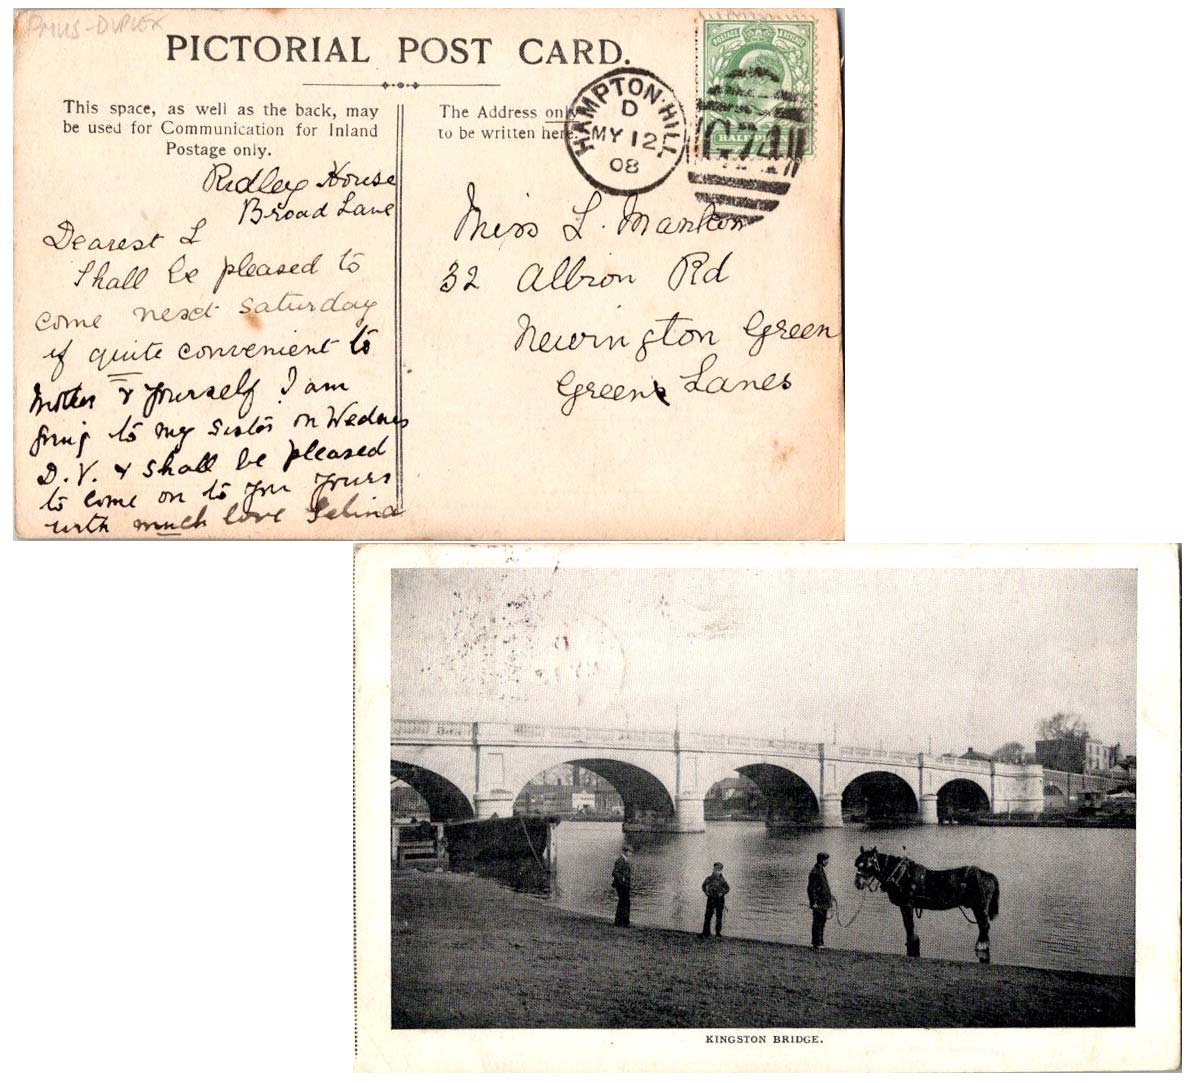 PMKS-DUPLEX
PICTORIAL POST CARD.
This space, as well as the back, may
be used for Communication for Inland
Postage only.
The Address only
to be written here.
HAMPTON·HILL.
D
MY 12
08
POSTAGE & REVENUE
HALF PENNY
G74
Ridley House
Broad Lane
Dearest L
Shall be pleased to
come next Saturday
if quite convenient to
Mother & yourself I am
going to my sister on Wednes
D.V. & shall be pleased
to come on to you yours
with much love Selina
Miss L. Mankom
32 Albion Rd
Newington Green
Green Lanes
KINGSTON BRIDGE.